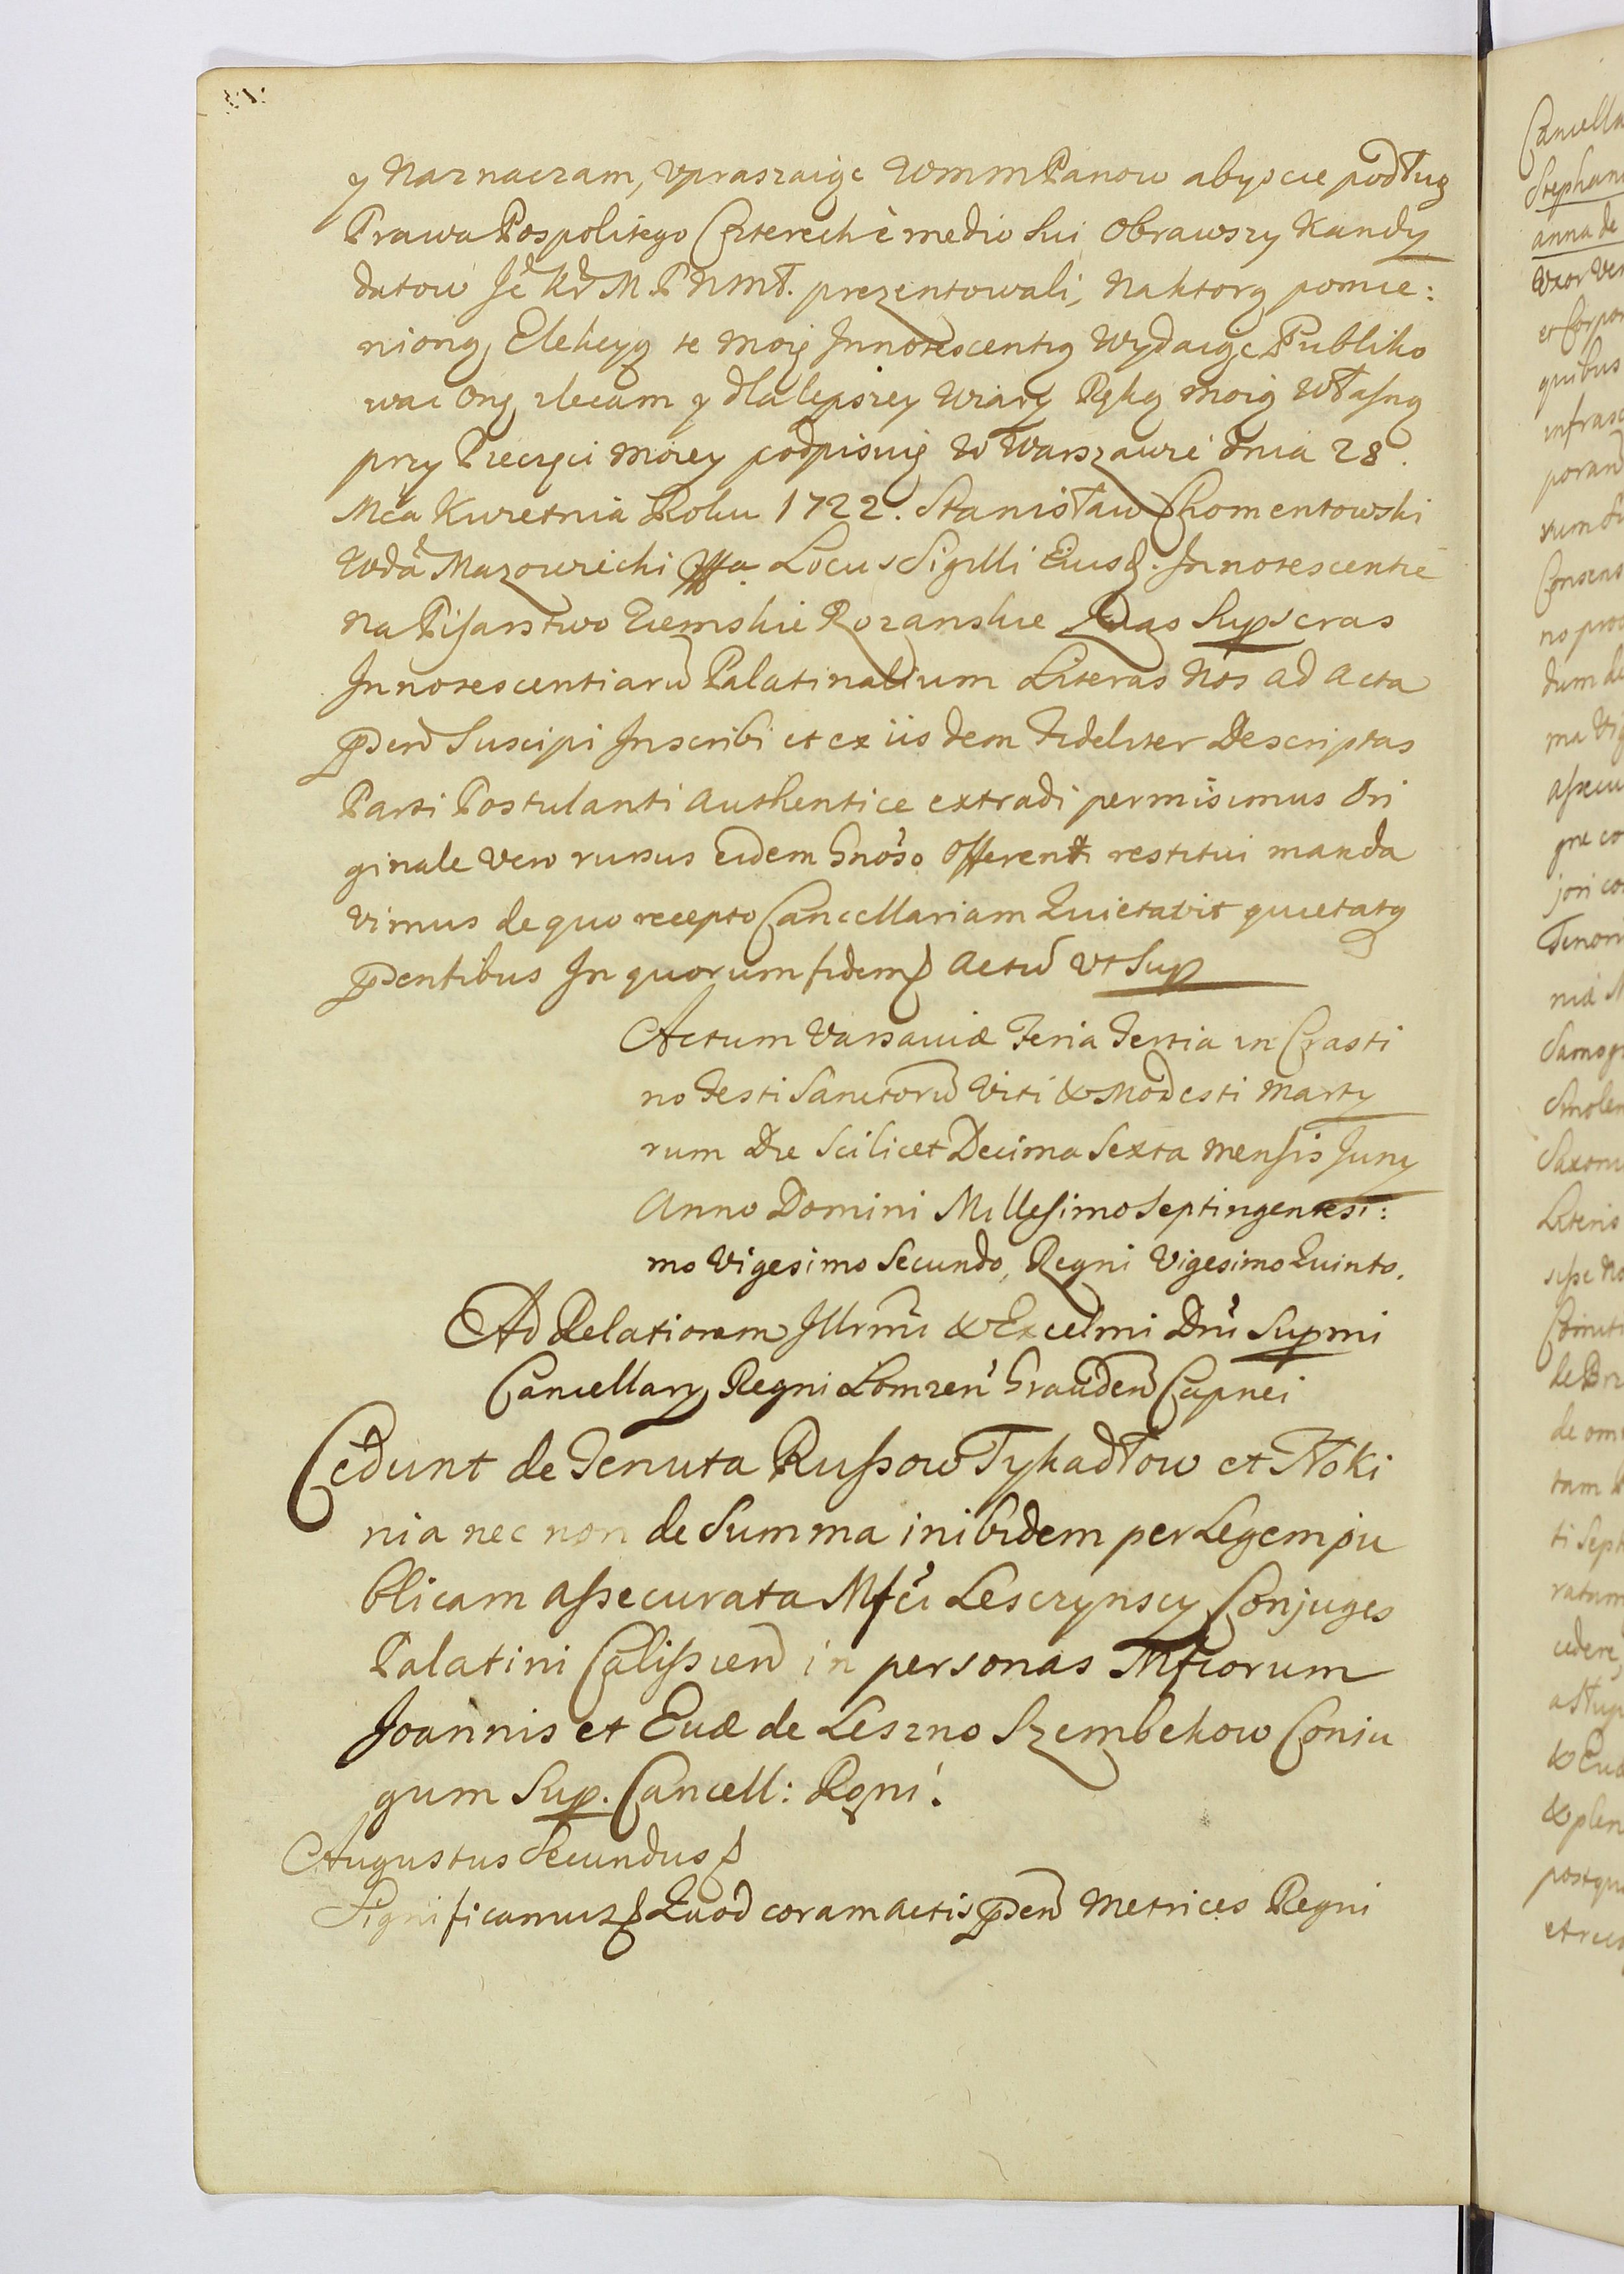 y Naznaczam, Upraszaiąc WmmPanow abyscie podług
Prawa Pospolitego Czterech è medio sui Obrawszy Kandy
datow Je° Kr M. P N Mł. prezentowali, Naktorą pomie:
nioną Elekcyą te moię Innotescentią Wydaiąc Publiko
wac Oną zlecam y dla lepszey Wiary Ręką moią Własną
przy Pieczęci moiey podpisuię W Warszawie dnia 28.
Mca Kwietnia Roku 1722. Stanisław Chomentowski
Wda Mazowiecki Locus Sigilli Eiusd. Innotescentie
Na Pisarstwo Ziemskie Rozanskie Quas Supscras
Innotescentiarū Palatinalium Literas Nos ad Acta
pñden Suscipi Inscribi et ex iisdem Fideliter Descriptas
Parti Postulanti Authentice extradi permisimus Ori
ginale vero rursus eidem Gnoso Offerenti restitui manda
vimus de quo recepto Cancellariam Quietavit quietatq
pñdentibus In quorum fidem Actū Ut Sup
Actum Varsaviæ Feria Tertia in Crasti
no Festi Sanctorū Viti & Modesti Marty
rum Die Scilicet Decima Sexta Mensis Juny
Anno Domini Millesimo Septingentesi:
mo Vigesimo Secundo, Regni Vigesimo Quinto.
Ad Relationem Illrmi & Excelmi Dni Supmi
Cancellary Regni Lomzen Grauden Capnei
Cedunt de Tenuta Russow Tykadłow et Tłoki
nia nec non de Summa inibidem per Legem pu
blicam assecurata Mfci Lesczynscy Conjuges
Palatini Calissien in personas Mficorum
Joannis et Evæ de Leszno Szembekow Conju
gum Sup. Cancell: Rgni.
Augustus Secundus
Significamus Quod coram actis pñden Metrices Regni